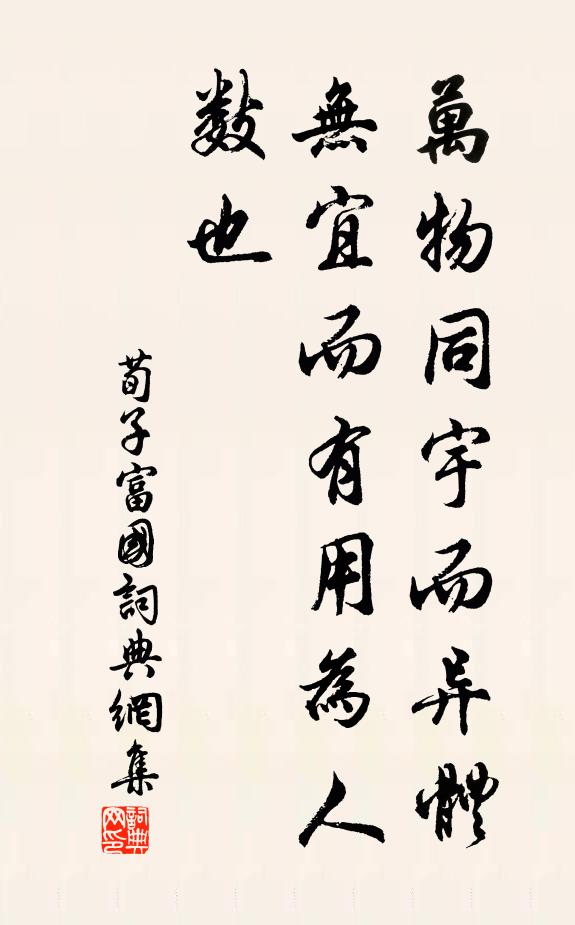 萬物同宇而异體
無宜而有用為人
數也
荀子富國詞典網集
詞典网印